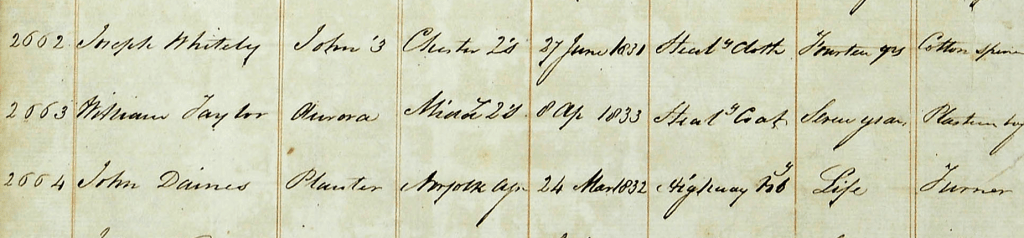 2662 Joseph Whitely John '3 Chester 2's 27 June 1831 Steal.g Cloth Fourteen yrs Cotton spinn
2663 William Taylor Aurora Midd.x 2's 8 Ap 1833 Steal.g Coat Seven years Plasterer boy
2664 John Daines Planter Norfolk 24 Mar 1832 Highway Rob.y Life Turner